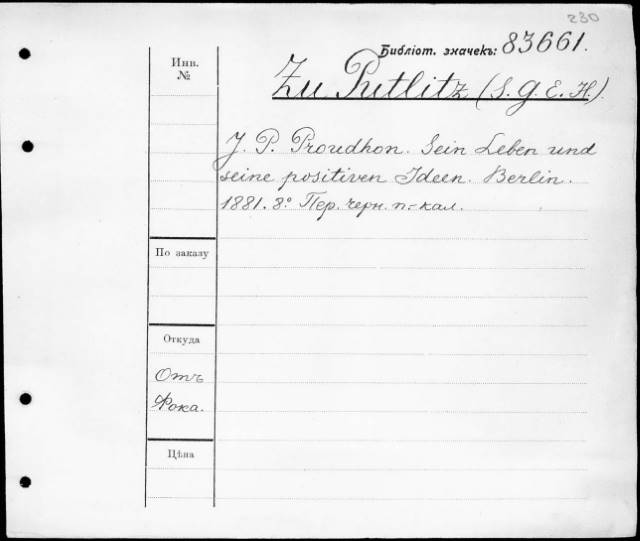 230
Библіот. значекъ: 83661.
Инв.
№
Zu Putlitz (S. G. E. H.).
J. P. Proudhon. Sein Leben und
seine positiven Ideen. Berlin.
1881. 8º Пер. черн. п.-кал.
По заказу
Откуда
Отъ
Фока.
Цѣна